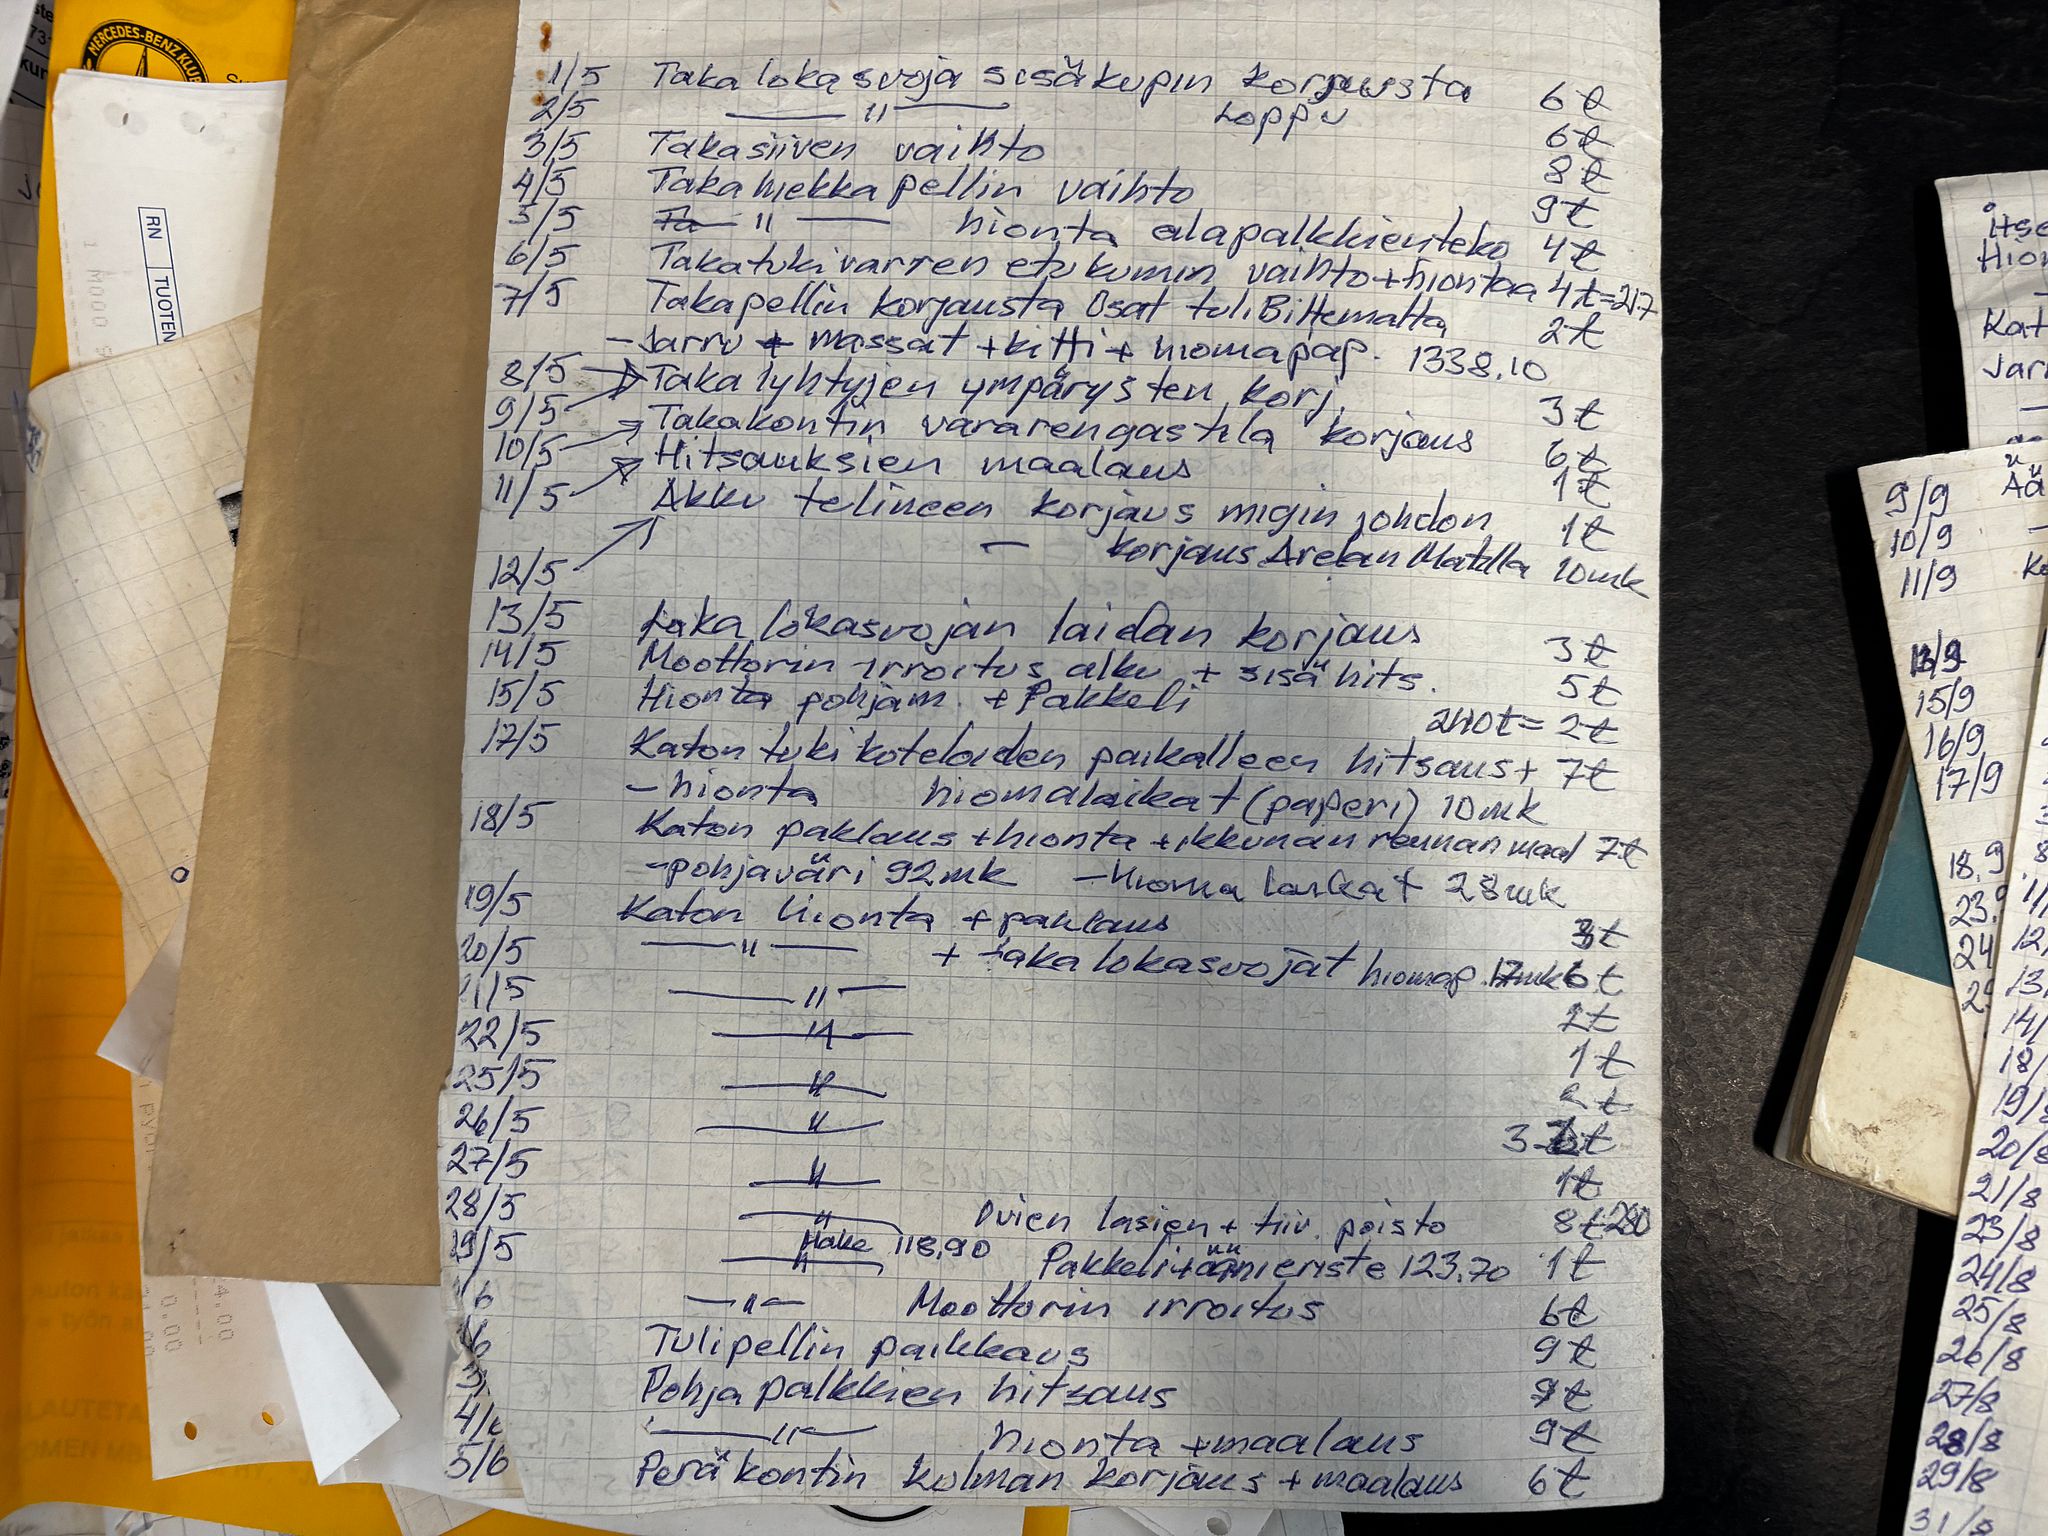 MERCEDES-BENZ KLUB
RN TUOTEN
1/5 Takalokasuoja sisäkupin korjausta 6t
2/5 —— " —— Loppu 6t
3/5 Takasiiven vaihto 8t
4/5 Takahiekkapellin vaihto 9t
5/5 —— " —— hionta alapalkkienteko 4t
6/5 Takatukivarren etukumin vaihto+hiontaa 4t=217
7/5 Takapellin korjausta Osat tuli Biltemalta 2t
-Jarru + massat + kitti + hiomapap. 1338.10
8/5 Takalyhtyjen ympärysten korj. 3t
9/5 Takakontin vararengastila korjaus 6t
10/5 Hitsauksien maalaus 1t
11/5 Akku telineen korjaus migin johdon 1t
— korjaus Arelan Matilla 10mk
12/5
13/5 Taka lokasuojan laidan korjaus 3t
14/5 Moottorin irroitus alku + sisä hits. 5t
15/5 Hionta pohjam. + Pakkeli 240t = 2t
17/5 Katon tukikoteloiden paikalleen hitsaus + 7t
-hionta hiomalaikat (paperi) 10mk
18/5 Katon paklaus + hionta + ikkunan reunan maal 7t
-pohjaväri 92mk -Hioma laikat 28mk
19/5 Katon hionta + paklaus 3t
20/5 —— " —— + takalokasuojat hiomap. 17mk 6t
21/5 —— " —— 2t
22/5 —— " —— 1t
25/5 —— " —— 2t
26/5 —— " —— 3t
27/5 —— " —— 1t
28/5 —— " —— Ovien lasien + tiiv. poisto 8t=280
29/5 —— " —— Hake 118,90 Pakkeli+äänieriste 123.70 1t
/6 —"— Moottorin irroitus 6t
/6 Tulipellin paikkaus 9t
3/ Pohjapalkkien hitsaus 9t
4/6 —— " —— hionta + maalaus 9t
5/6 Peräkontin kulman korjaus + maalaus 6t
Hion
Kat
Jarr
9/9 Ää
10/9
11/9
13/9
15/9
16/9
17/9
18.9
23.9
24
12/
13/
14/
18/
19/8
20/8
21/8
23/8
24/8
25/8
26/8
27/8
28/8
29/8
31/8